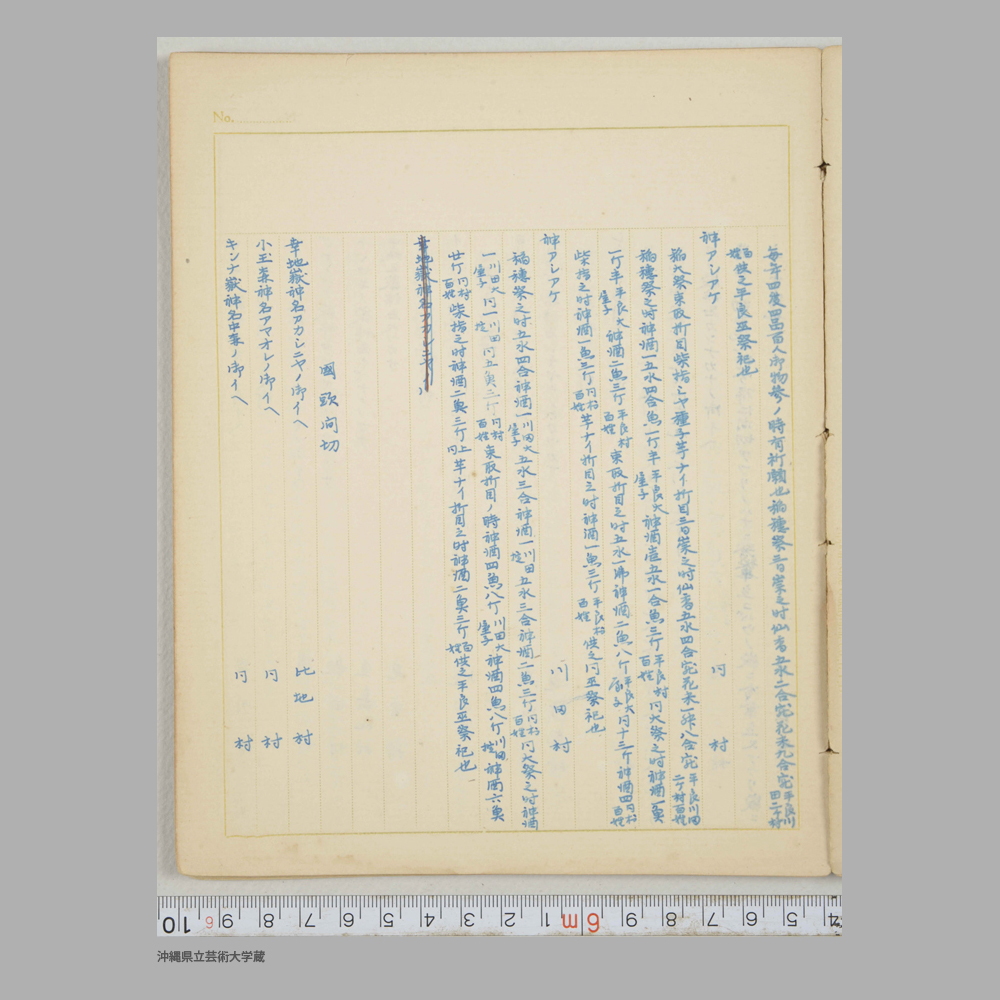 No.
毎年四度四品百人御物参ノ時有祈願也稲穂祭三日崇之時仙香五水二合宛花米九合宛平良川田二ケ村
百姓供之平良巫祭祀也
神アシアケ 同村
稲大祭束取折目柴指ミヤ種子芋ナイ折目三日崇之時仙香五水四合宛花米一升八合宛平良川田二ケ村百姓
稲穂祭之時神酒一五水四合魚一斤半平良大屋子神酒壱五水一合魚三斤平良村百姓同大祭之時神酒一魚
一斤半平良大屋子神酒二魚三斤平良村百姓束取折目之時五水一沸神酒二魚八斤平良大屋子同十三斤神酒四同村百姓
柴指之時神酒一魚三斤同村百姓芋ナイ折目之時神酒一魚三斤平良村百姓供之同巫祭祀也
神アシアケ 川田村
稲穂祭之時五水四合神酒一川田大屋子五水三合神酒一川田掟五水三合神酒二魚三斤同村百姓同大祭之時神酒
一川田大屋子同一川田掟同五魚三斤同村百姓束取折目ノ時神酒四魚八斤川田大屋子神酒四魚八斤川田掟神酒六魚
廿斤同村百姓柴指之時神酒二魚三斤同上芋ナイ折目之時神酒二魚三斤百姓供之平良巫祭祀也
幸地嶽神名アカシニヤノ
國頭間切
幸地嶽神名アカシニヤノ御イへ 比地村
小玉森神名アマオレノ御イへ 同村
キンナ嶽神名中森ノ御イへ 同村
10 6 9 8 7 6 5 4 3 2 1 6m 9 8 7 6 5 4
沖縄県立芸術大学蔵